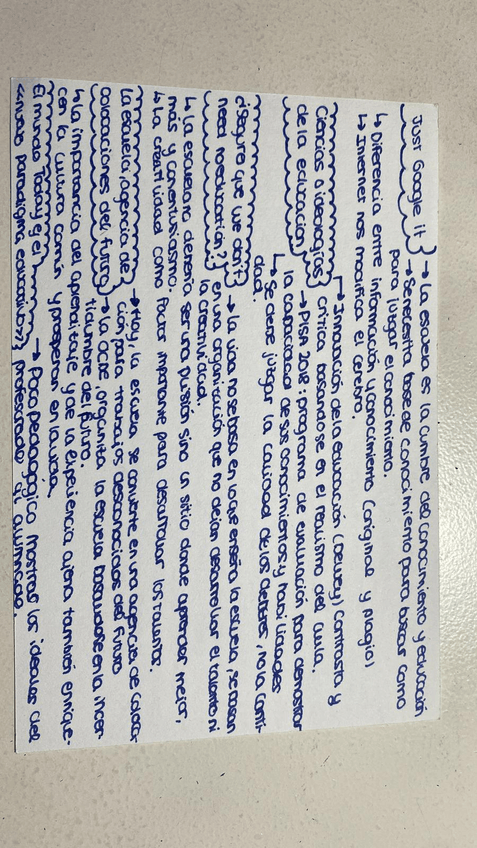 Just Google It → La escuela es la cumbre del conocimiento y educación
→ Se necesita base de conocimiento para buscar como
para juzgar el conocimiento.
↳ Diferencia entre información y conocimiento (original y plagio)
↳ Internet nos modifica el cerebro.
Ciencias o ideologías → Innovación de la educación (Dewey) contrasta y
de la educación crítica basándose en el realismo del aula.
→ PISA 2018: programa de evaluación para demostrar
la capacidad de sus conocimientos y habilidades
↳ Se debe juzgar la calidad de los deberes, no la canti-
dad.
¿Seguro que "we don't → la vida no se basa en lo que enseña la escuela, se basan
need no education"? en una organización que no dejan desarrollar el talento ni
la creatividad.
↳ La escuela no debería ser una prisión sino un sitio donde aprender mejor,
más y con entusiasmo.
↳ La creatividad como factor importante para desarrollar los talentos.
La escuela, agencia de → Hoy, la escuela se convierte en una agencia de coloca-
colocaciones del futuro ción para trabajos desconocidos del futuro
→ La OCDE organiza la escuela basándose en la incer-
tidumbre del futuro.
↳ La importancia del aprendizaje y de la experiencia ajena también enrique-
cen la cultura común y prosperan en la vida.
El mundo Today y el → Poco pedagógico mostrar los ideales del
«nuevo paradigma educativo» profesorado al alumnado.